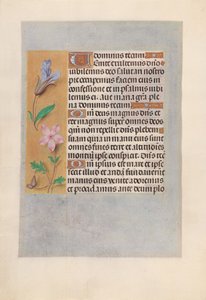 dominus tecum
Enite exultemus dño
iubilemus deo salutari nostro
preoccupemus faciem eius in
confessione et in psalmis iubi
lemus ei. Aue maria gr̃a ple
na dominus tecum
m deus magnus dñs et
rex magnus super omnes deos
qm̃ non repellet dñs plebem
suam quia in manu eius sunt
omnes fines terre et altitudines
montiũ ipse conspicit.
m̃ ipsius est mare et ipse
fecit illud et aridam fundauerunt
manus eius venite adoremus
et procidamus ante deum plo